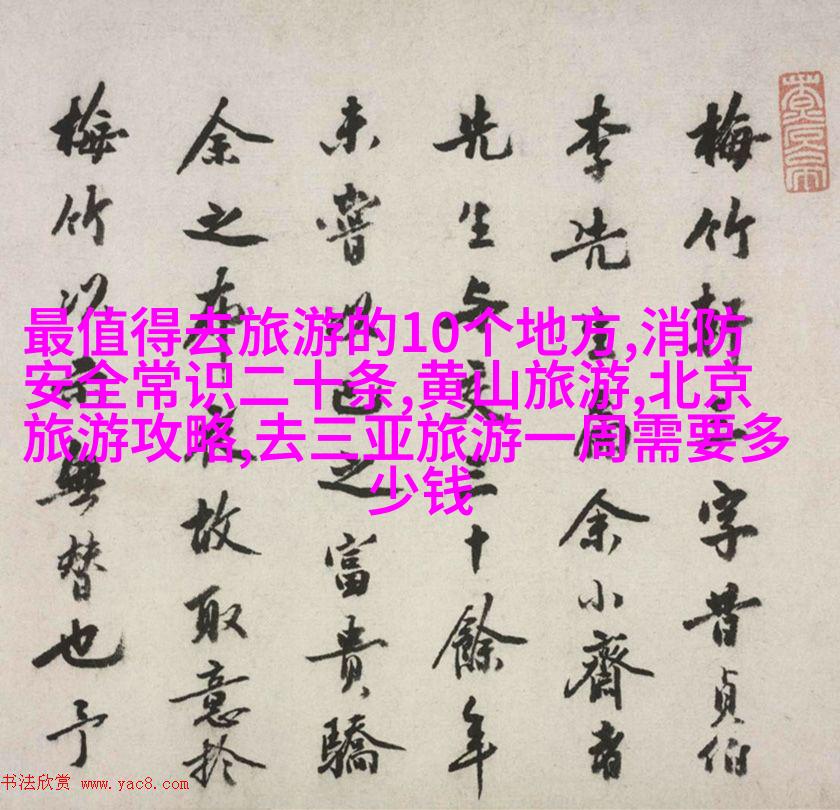 梅竹軒三字昔貞伯
李先生余小齋者
先生与交三十餘年
未嘗以己之富貴驕
余之故取意於
梅竹以示無替也予
最值得去旅游的10个地方,消防
安全常识二十条,黄山旅游,北京
旅游攻略,去三亚旅游一周需要多
少钱
书法欣赏 www.yac8.com